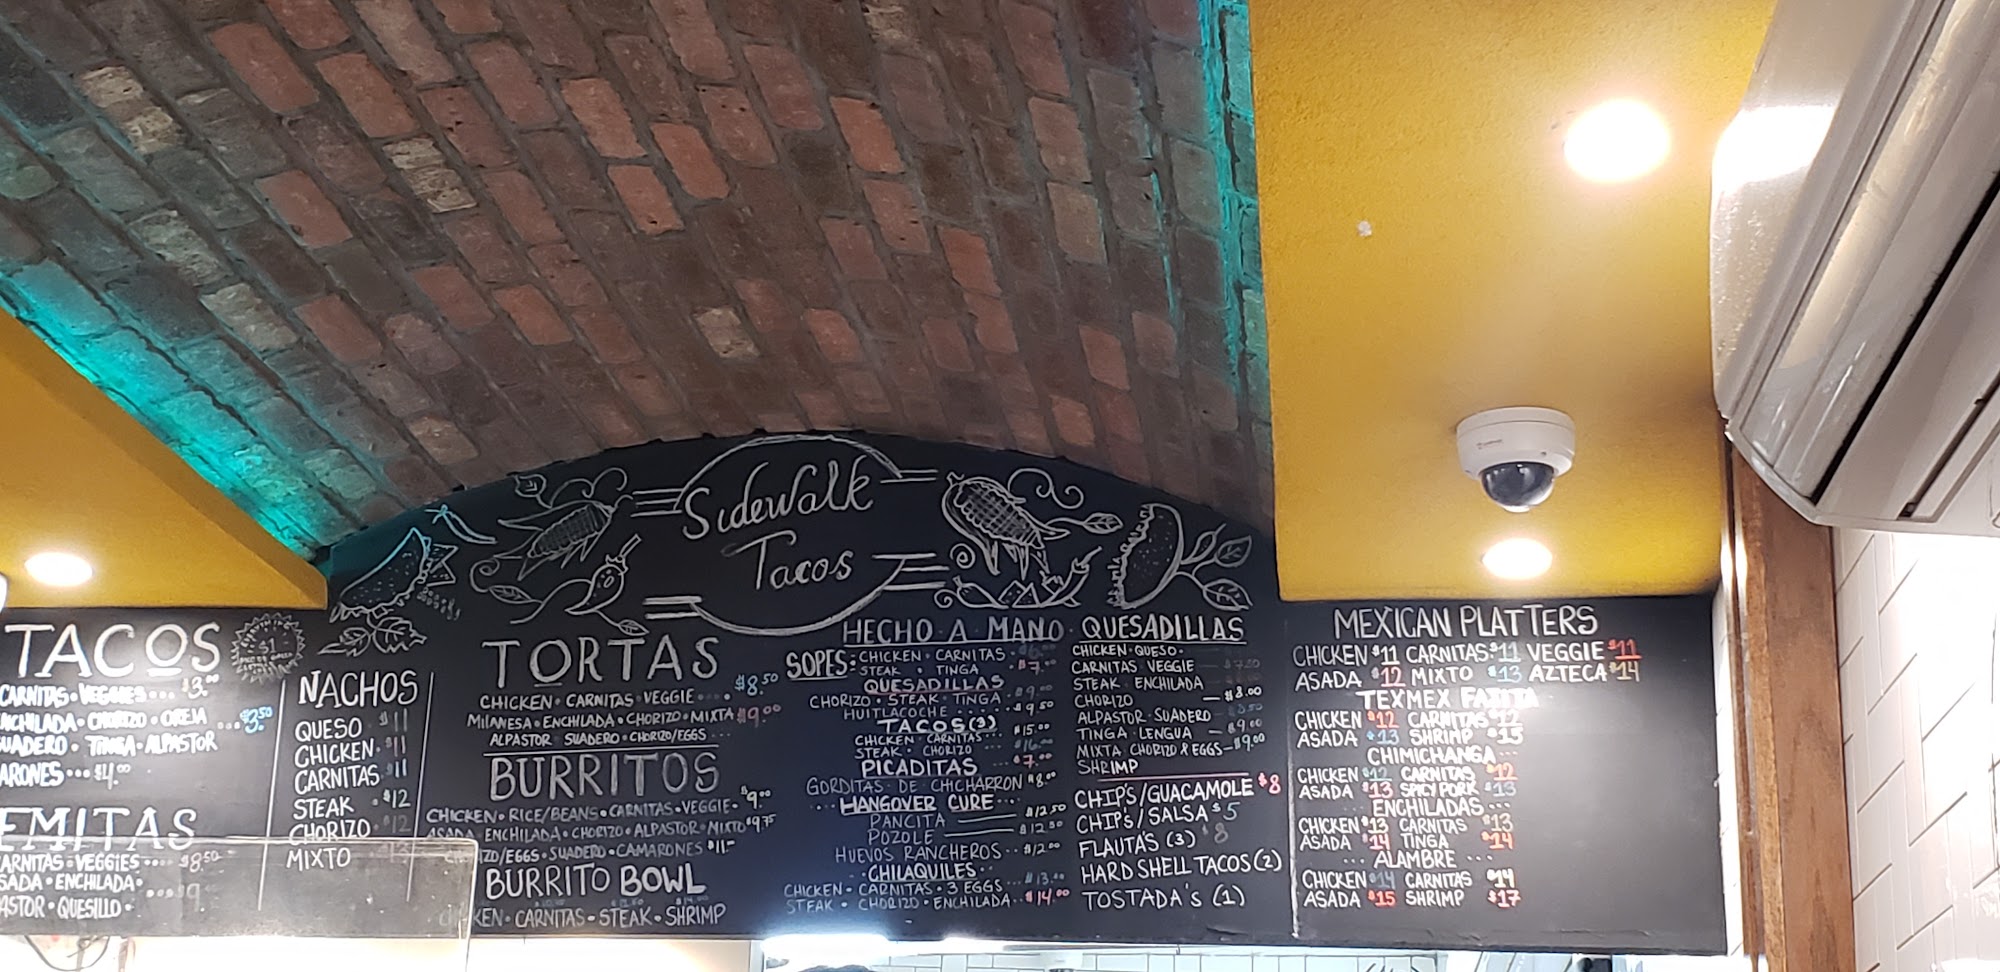 Sidewalk
Tacos
TACOS
$1
CARNITAS · VEGGIES ... $3.00
ENCHILADA · CHORIZO · OREJA ... $3.50
SUADERO · TINGA · ALPASTOR
ARONES ... $4.00
EMITAS
CARNITAS · VEGGIES .... $8.50
SADA · ENCHILADA · .... $9
ASTOR · QUESILLO ·
NACHOS
QUESO $11
CHICKEN · $11
CARNITAS $11
STEAK · $12
CHORIZO · $12
MIXTO
TORTAS
CHICKEN · CARNITAS · VEGGIE .... $8.50
MILANESA · ENCHILADA · CHORIZO · MIXTA $9.00
ALPASTOR · SUADERO · CHORIZO/EGGS ...
BURRITOS
CHICKEN · RICE/BEANS · CARNITAS · VEGGIE · $9.00
ASADA · ENCHILADA · CHORIZO · ALPASTOR · MIXTO $9.75
IZO/EGGS · SUADERO · CAMARONES · $11-
BURRITO BOWL
CHICKEN · CARNITAS · STEAK · SHRIMP
HECHO · A · MANO ·
SOPES: CHICKEN · CARNITAS ·
STEAK · TINGA · $7.00
QUESADILLAS
CHORIZO · STEAK · TINGA · $9.00
HUITLACOCHE .... $9.50
TACOS (3)
CHICKEN · CARNITAS ... $15.00
STEAK · CHORIZO ... $16.00
PICADITAS $7.00
GORDITAS · DE · CHICHARRON $8.00
... HANGOVER CURE ...
PANCITA $12.50
POZOLE $12.50
HUEVOS RANCHEROS ... $12.00
· CHILAQUILES ·
CHICKEN · CARNITAS · 3 EGGS .... $13.00
STEAK · CHORIZO · ENCHILADA .. $14.00
QUESADILLAS
CHICKEN · QUESO ·
CARNITAS VEGGIE $7.50
STEAK · ENCHILADA
CHORIZO — $8.00
ALPASTOR · SUADERO — $8.50
TINGA · LENGUA — $9.00
MIXTA CHORIZO & EGGS — $9.00
SHRIMP
CHIPS/GUACAMOLE $8
CHIPS/SALSA $5
FLAUTA'S (3) $8
HARD SHELL TACOS (2)
TOSTADA'S (1)
MEXICAN PLATTERS
CHICKEN $11 CARNITAS $11 VEGGIE $11
ASADA $12 MIXTO $13 AZTECA $14
TEXMEX FAJITA
CHICKEN $12 CARNITAS $12
ASADA $13 SHRIMP $15
CHIMICHANGA ...
CHICKEN $12 CARNITAS $12
ASADA $13 SPICY PORK $13
... ENCHILADAS ...
CHICKEN $13 CARNITAS $13
ASADA $14 TINGA $14
... ALAMBRE ...
CHICKEN $14 CARNITAS $14
ASADA $15 SHRIMP $17